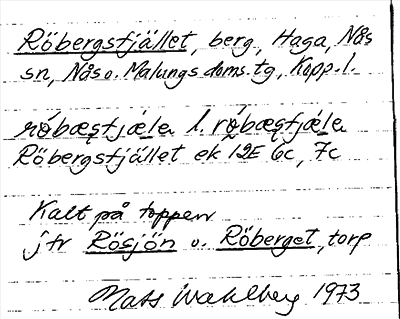 Röbergsfjället, berg, Haga, Nås
sn, Nås o. Malungs doms. tg, Kopp. l.
röbæʂfjæ̀lə l. rö̀bæʂfjælə
Röbergsfjället ek 12E 6c, 7c
Kalt på toppen
jfr Rösjön o. Röberget, torp
Mats Wahlberg 1973